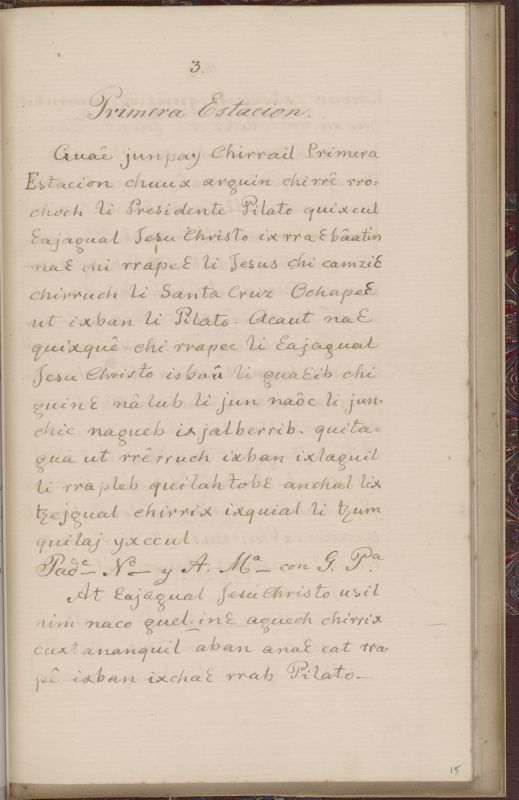 3.
Primera Estacion.
Guaê junpay Chirrail Primera
Estacion chuux arguin chirrê rro=
choch li Presidente Pilato quixcul
Eajagual Jesu Christo ix rraEbâatin
naE chi rrapeE li Jesus chi camziE
chirruch li Santa Cruz OchapeE
ut ixban li Pilato. Acaut naE
quixquê chi rrapec li Eajagual
Jesu Christo isbaû li guaEib chi
guinE nâlub li jun naôc li jun-
chic nagueb ix jalberrib. quita=
gua ut rrêrruch ixban ixlaguil
li rrapleb quilahtobE anchal lix
tzejgual chirrix ixquial li tzum
quilaj yxccul
Padᵉ Nᵒ y A. Mᵃ con G. Pᵃ
At Eajagual Jesu Christo usil
nim naco guelinE aguech chirrix
cuxtananquil aban anaE cat rra=
pê ixban ixchaE rrab Pilato—
15